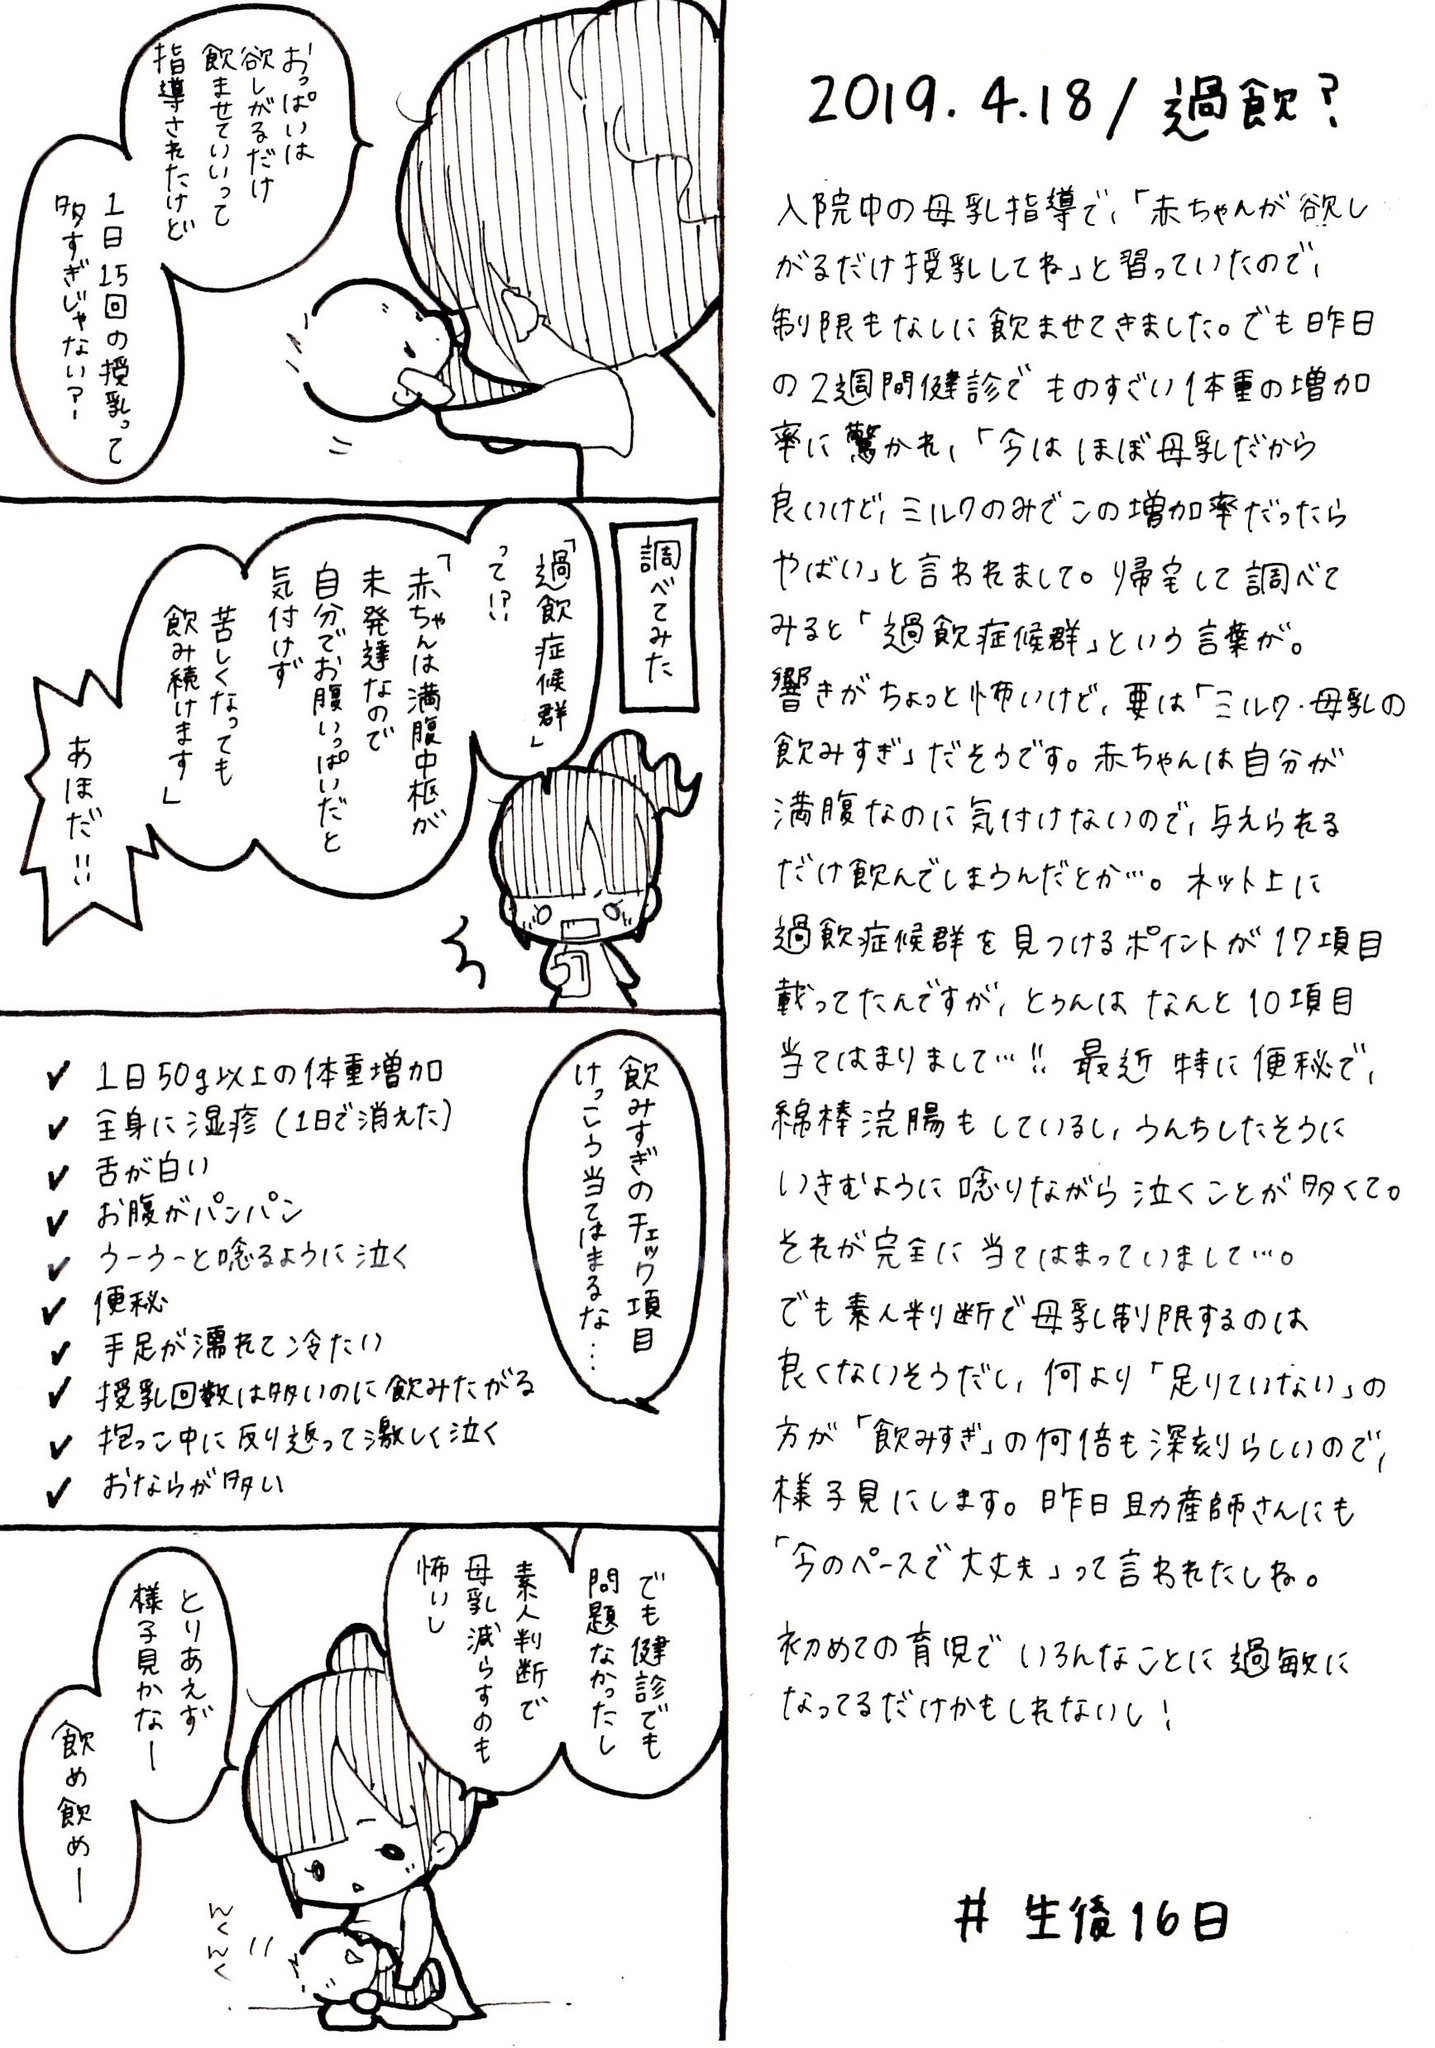 おっぱいは
欲しがるだけ
飲ませていいって
指導されたけど
1日15回の授乳って
多すぎじゃない？
調べてみた
「過飲症候群」
って!?
「赤ちゃんは満腹中枢が
未発達なので
自分でお腹いっぱいだと
気付けず
苦しくなっても
飲み続けます」
あほだ!!
飲みすぎのチェック項目
けっこう当てはまるな…
✓ 1日50g以上の体重増加
✓ 全身に湿疹(1日で消えた)
✓ 舌が白い
✓ お腹がパンパン
✓ ウーウーと唸るように泣く
✓ 便秘
✓ 手足が濡れて冷たい
✓ 授乳回数は多いのに飲みたがる
✓ 抱っこ中に反り返って激しく泣く
✓ おならが多い
でも健診でも
問題なかったし
素人判断で
母乳減らすのも
怖いし
とりあえず
様子見かなー
飲め飲めー
んくんく
2019.4.18/過飲？
入院中の母乳指導で、「赤ちゃんが欲し
がるだけ授乳してね」と習っていたので、
制限もなしに飲ませてきました。でも昨日
の2週間健診でものすごい体重の増加
率に驚かれ、「今はほぼ母乳だから
良いけど、ミルクのみでこの増加率だったら
やばい」と言われまして。帰宅して調べて
みると「過飲症候群」という言葉が。
響きがちょっと怖いけど、要は「ミルク・母乳の
飲みすぎ」だそうです。赤ちゃんは自分が
満腹なのに気付けないので、与えられる
だけ飲んでしまうんだとか…。ネット上に
過飲症候群を見つけるポイントが17項目
載ってたんですが、とぅんはなんと10項目
当てはまりまして…!! 最近特に便秘で、
綿棒浣腸もしているし、うんちしたそうに
いきむように唸りながら泣くことが多くて。
それが完全に当てはまっていまして…。
でも素人判断で母乳制限するのは
良くないそうだし、何より「足りていない」の
方が「飲みすぎ」の何倍も深刻らしいので、
様子見にします。昨日助産師さんにも
「今のペースで大丈夫」って言われたしね。
初めての育児でいろんなことに過敏に
なってるだけかもしれないし！
# 生後16日